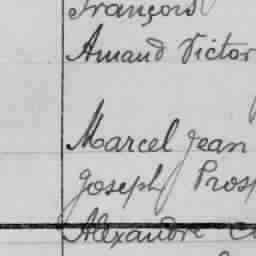 François
Amand Victor
Marcel Jean
Joseph Prosp
Alexandre